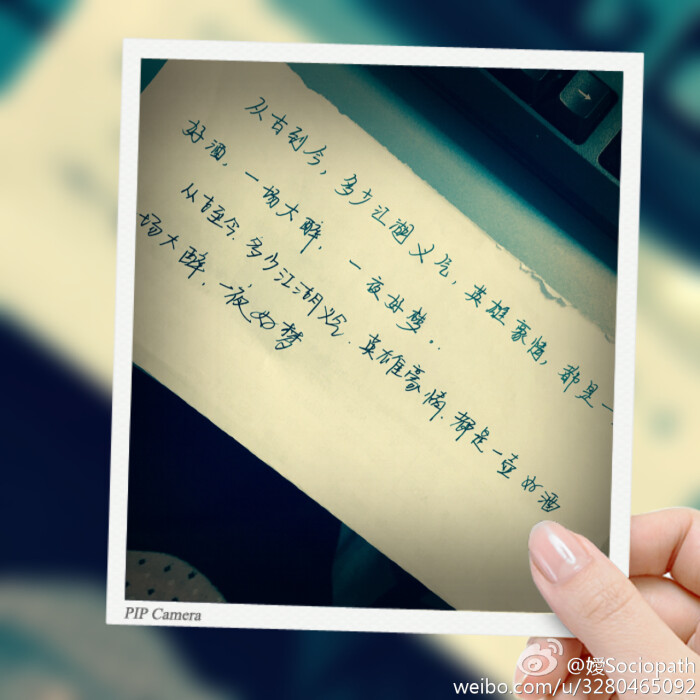 从古到今，多少江湖义气，英雄豪情，都是一
好酒，一场大醉，一夜好梦..
从古至今.多少江湖义气.英雄豪情.都是一壶好酒
场大醉，一夜好梦
PIP Camera
@嫒Sociopath
weibo.com/u/3280465092